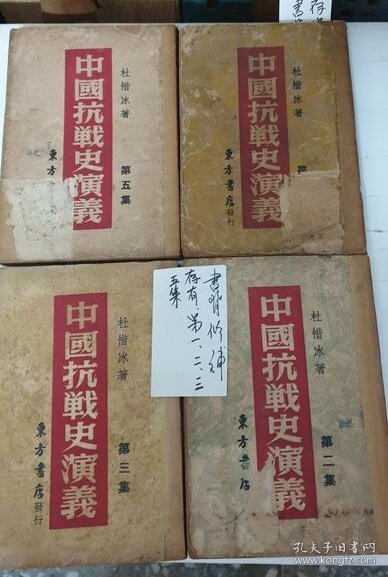 杜惜冰著
中國抗戰史演義
第五集
東方書店
杜惜冰著
中國抗戰史演義
第
東方書店
發行
書背修補
存有第一、二、三
五集
杜惜冰著
中國抗戰史演義
第三集
東方書店
發行
杜惜冰著
中國抗戰史演義
第二集
東方書店
孔夫子旧书网
www.kongfz.com